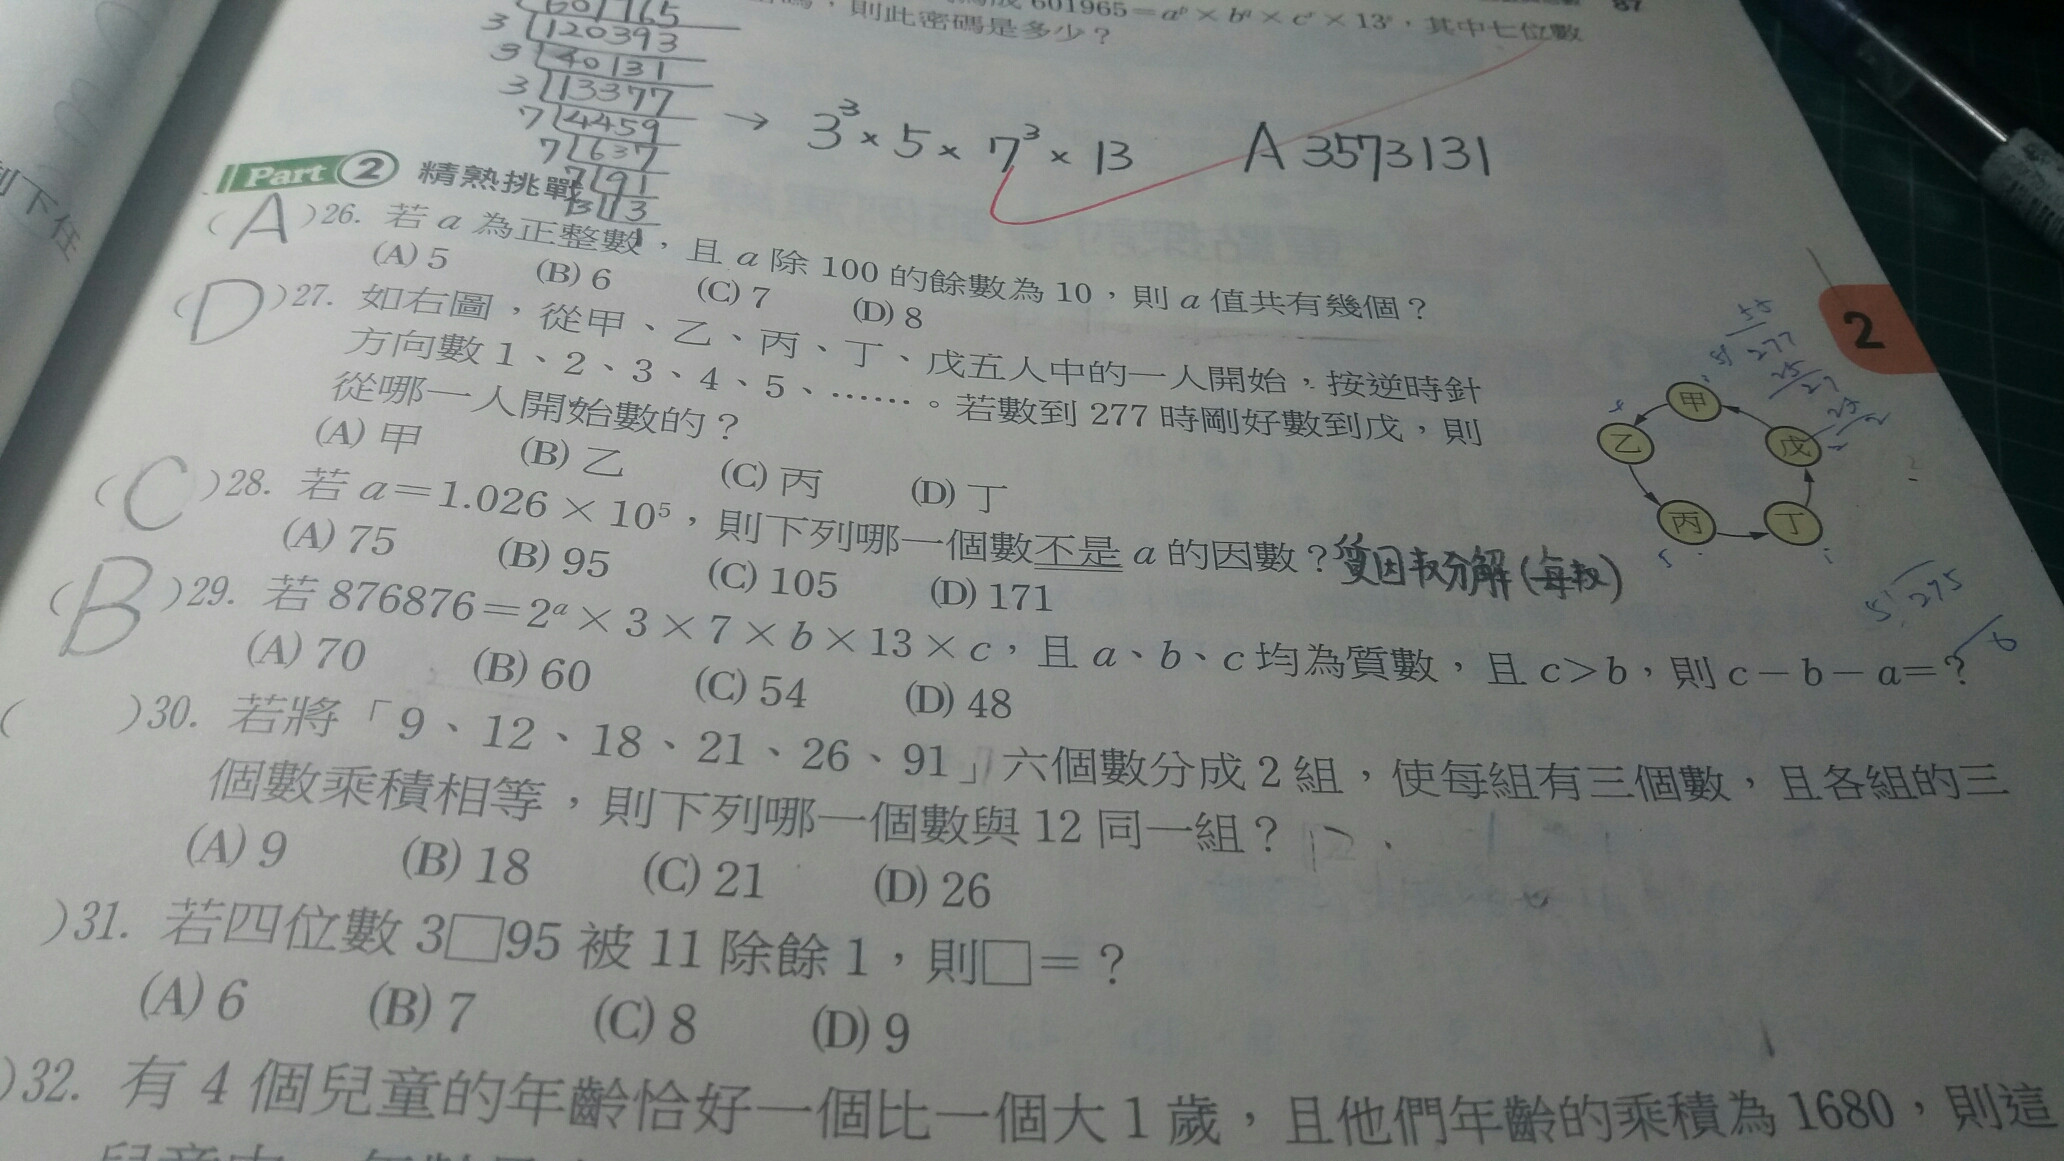 601965=aᵖ×b^q×cʳ×13ˢ,其中七位數
87
,則此密碼是多少?
601965
3 120393
3 40131
3 13377
7 4459
7 637
7 91
13 13
1
→ 3³×5×7³×13 A 3573131
Part 2 精熟挑戰
(A)26. 若 a 為正整數,且 a 除 100 的餘數為 10,則 a 值共有幾個?
(A) 5 (B) 6 (C) 7 (D) 8
(D)27. 如右圖,從甲、乙、丙、丁、戊五人中的一人開始,按逆時針
方向數 1、2、3、4、5、……。若數到 277 時剛好數到戊,則
從哪一人開始數的?
(A) 甲 (B) 乙 (C) 丙 (D) 丁
2
55
5 277
25
27
25
2
甲
乙
戊
丙
丁
(C)28. 若 a=1.026×10⁵,則下列哪一個數不是 a 的因數?質因數分解(每數)
(A) 75 (B) 95 (C) 105 (D) 171
5 275
(B)29. 若 876876=2ᵃ×3×7×b×13×c,且 a、b、c 均為質數,且 c>b,則 c-b-a=?
(A) 70 (B) 60 (C) 54 (D) 48
( )30. 若將「9、12、18、21、26、91」六個數分成 2 組,使每組有三個數,且各組的三
個數乘積相等,則下列哪一個數與 12 同一組?
(A) 9 (B) 18 (C) 21 (D) 26
)31. 若四位數 3□95 被 11 除餘 1,則□=?
(A) 6 (B) 7 (C) 8 (D) 9
)32. 有 4 個兒童的年齡恰好一個比一個大 1 歲,且他們年齡的乘積為 1680,則這